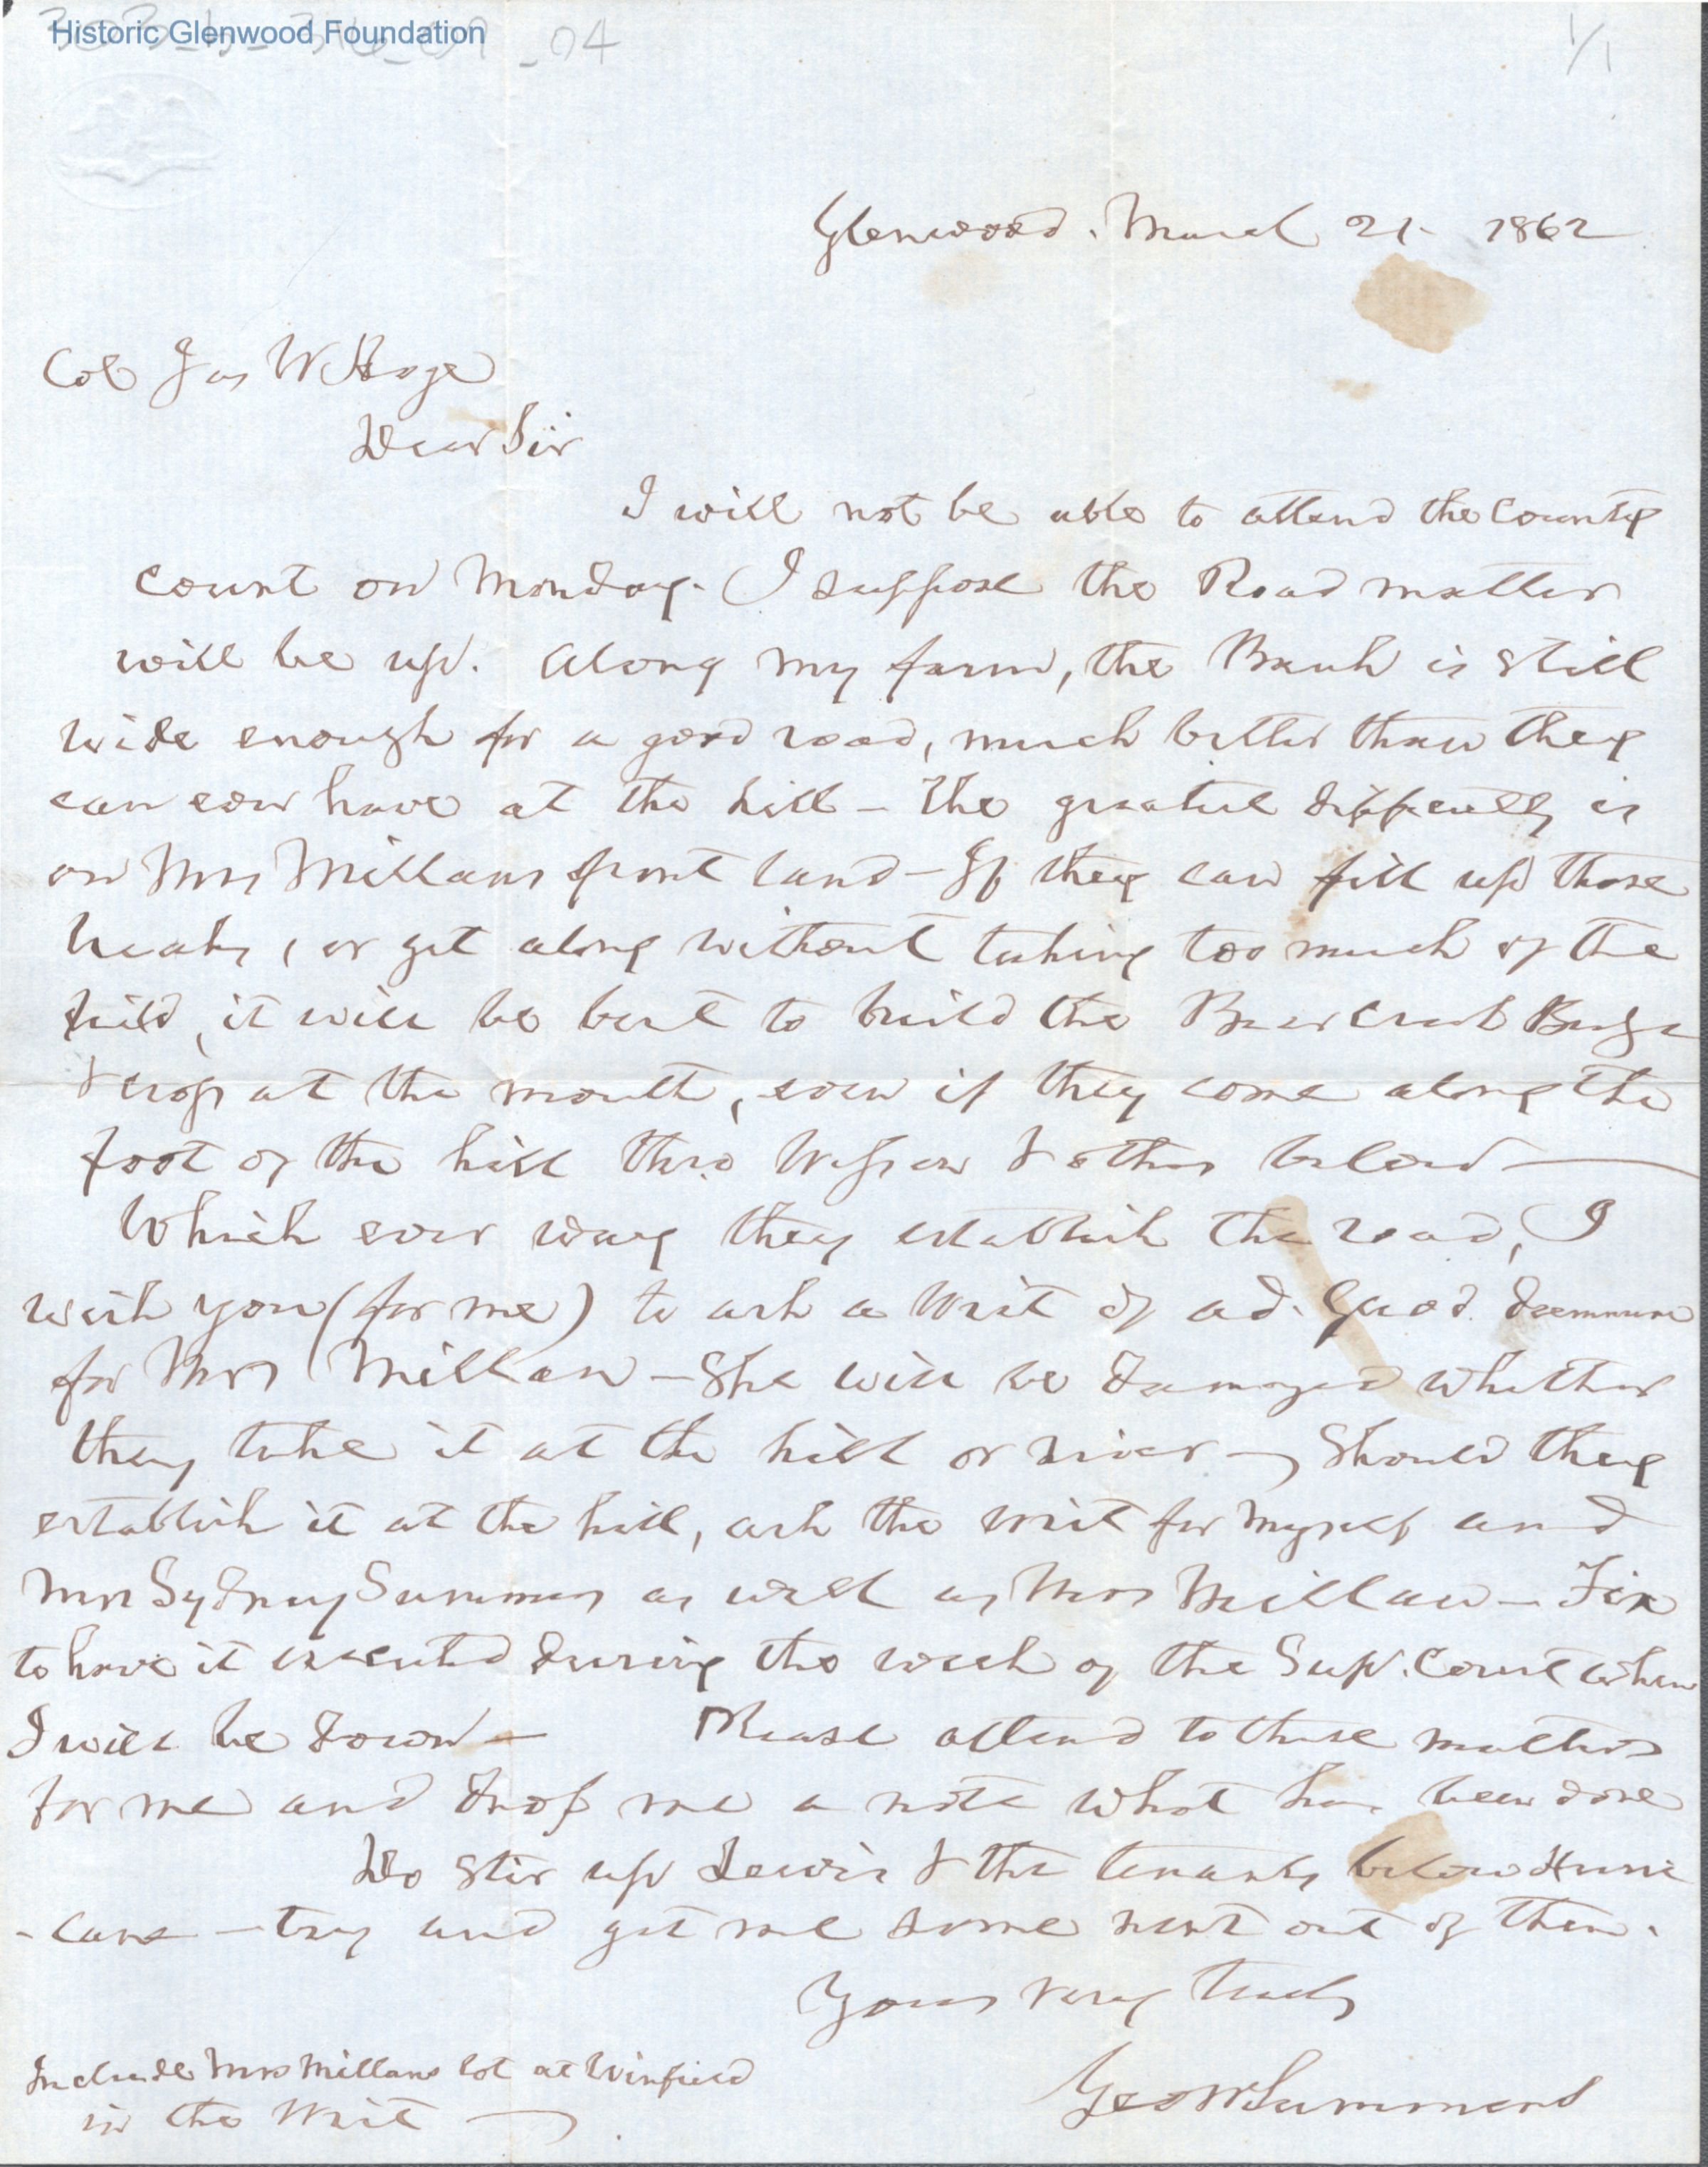 Historic Glenwood Foundation
04
1/1
Glenwood. March 21. 1862
Col Jas W Hoge
Dear Sir
I will not be able to attend the County
Court on Monday. I suppose the Road matter
will be up. Along my farm, the Bank is still
wide enough for a good road, much better than they
can ever have at the hill – The greatest difficulty is
on Mrs Millans front land – If they can fill up those
breaks, or get along without taking too much of the
field, it will be best to build the Bridge
& cross at the mouth, even if they come along the
foot of the hill thro & others below —
Which ever way they establish the road, I
wish you (for me) to ask a Writ of ad. quod. damnum
for Mrs Millan – She will be damaged whether
they take it at the hill or river – Should they
establish it at the hill, ask the writ for myself and
Mrs Sydney Summers as well as Mrs Millan – Fix
to have it executed during the week of the Sup. Court when
I will be down – Please attend to these matters
for me and drop me a note what has been done
Do stir up Lewis & the tenants below Hurri
-cane – try and get me some rent out of them.
Yours very truly
Geo W Summers
Include Mrs Millans lot at Winfield
in the Writ —